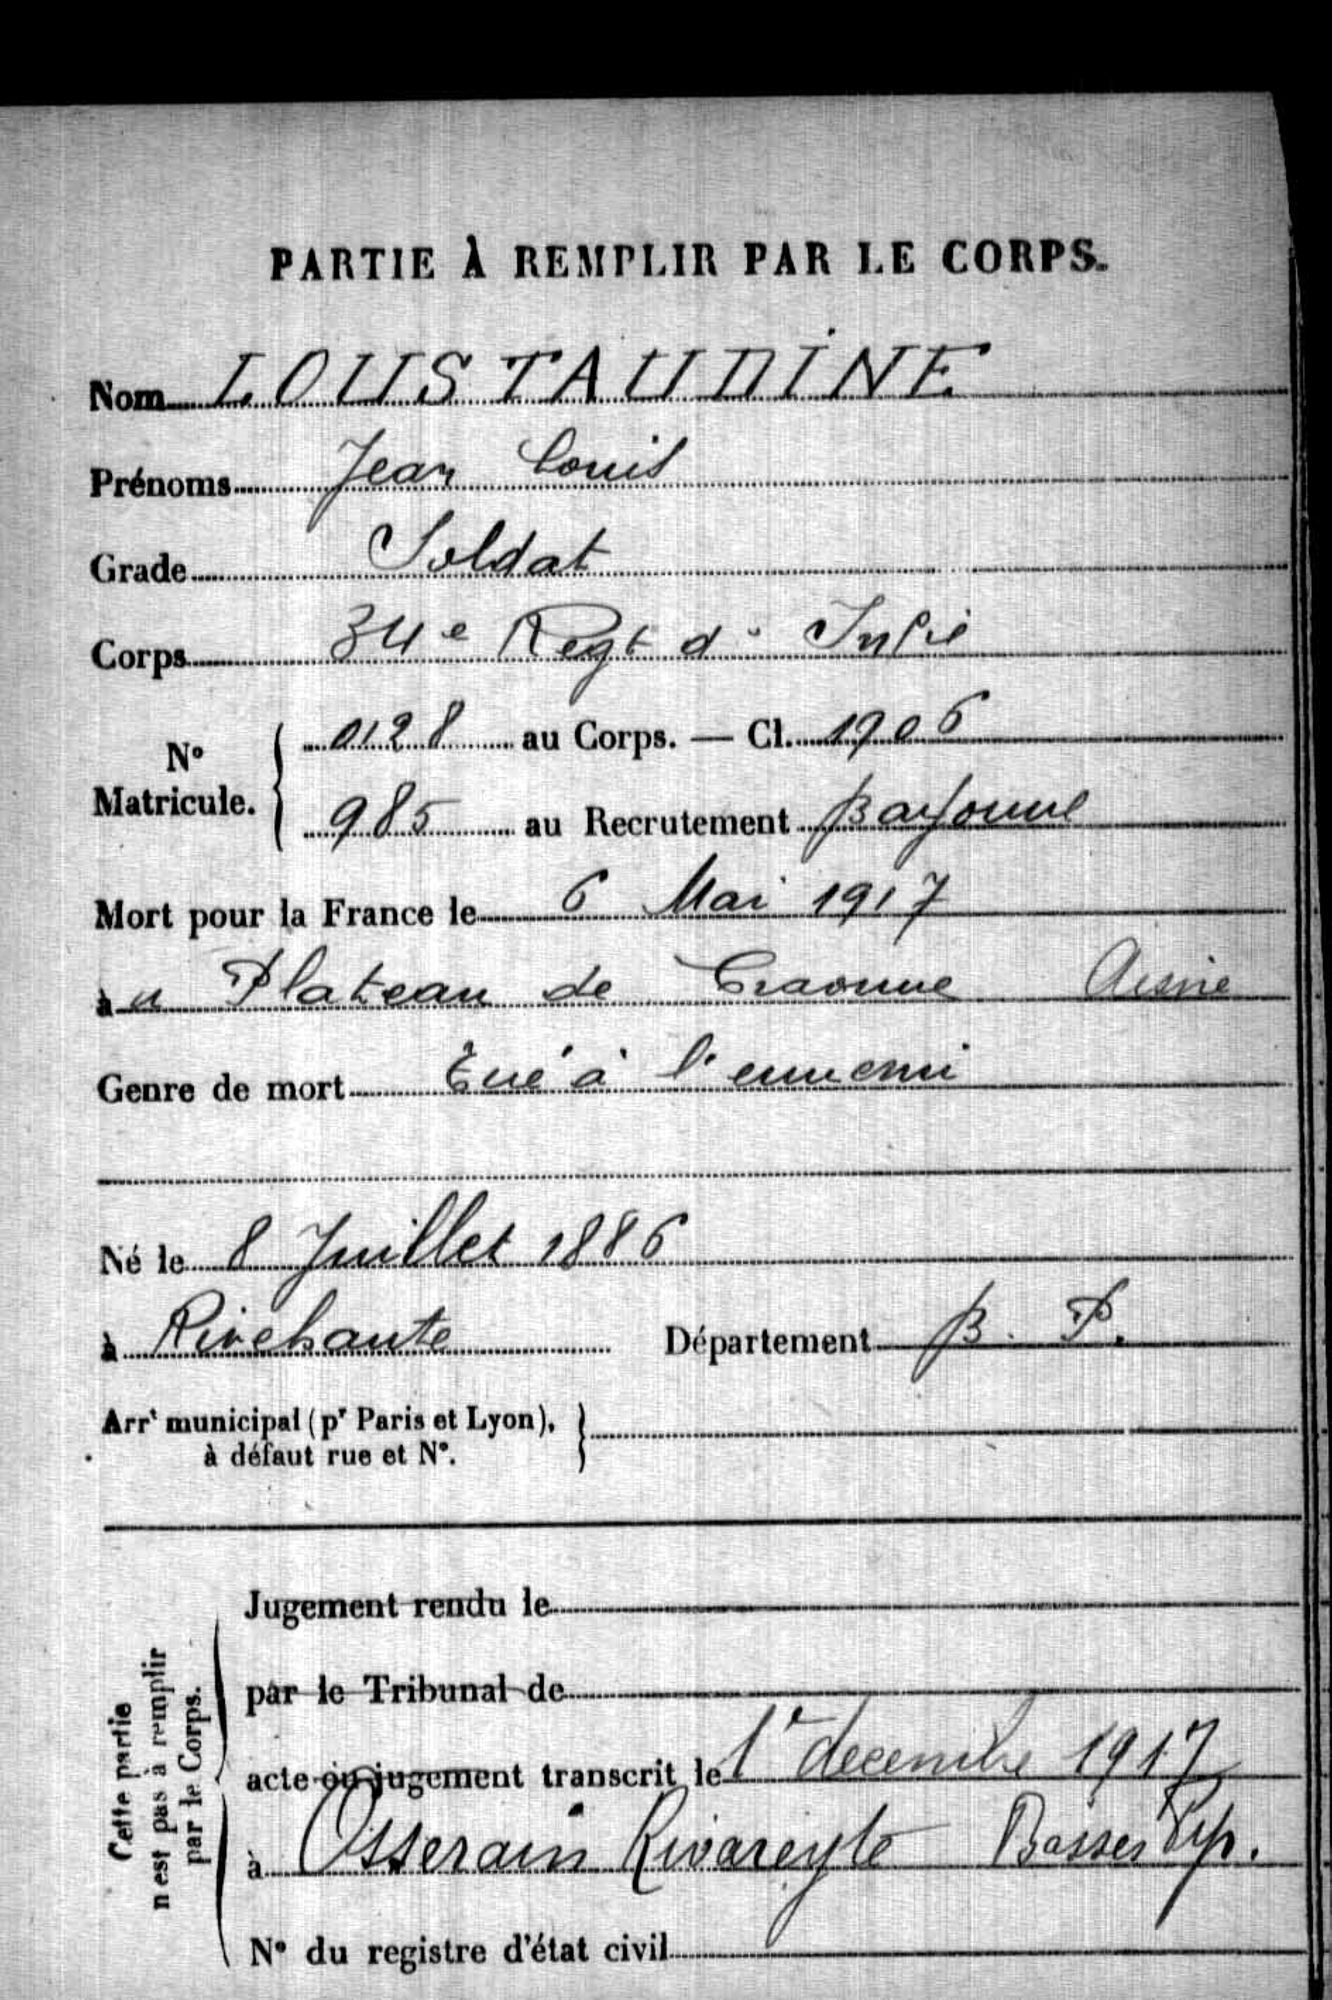 PARTIE À REMPLIR PAR LE CORPS.
Nom LOUSTAUDINE
Prénoms Jean Louis
Grade Soldat
Corps 34e Regt d' Infie
N° Matricule. 0128 au Corps. — Cl. 1906
985 au Recrutement Bayonne
Mort pour la France le 6 Mai 1917
à u Plateau de Craonne Aisne
Genre de mort Tué à l'ennemi
Né le 8 Juillet 1886
à Rivehaute Département B. P.
Arrt municipal (pr Paris et Lyon),
à défaut rue et N°.
Cette partie
n'est pas à remplir
par le Corps.
Jugement rendu le
par le Tribunal de
acte ou jugement transcrit le 1r decembre 1917
à Osserain Rivareyte Basses Pyr.
N° du registre d'état civil